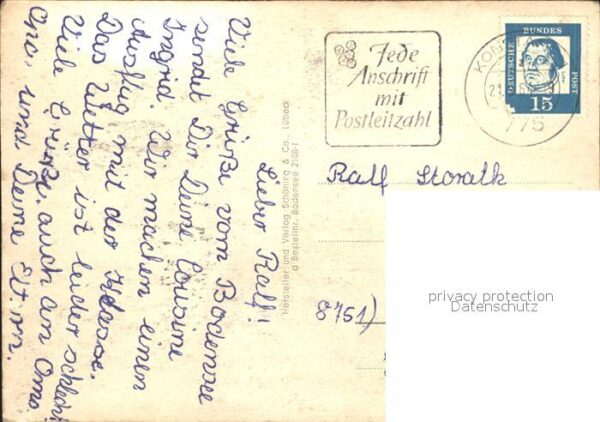 Lieber Ralf!
Viele Grüße vom Bodensee
sendet Dir Deine Cousine
Ingrid. Wir machen einen
Ausflug mit der Klasse.
Das Wetter ist leider schlecht.
Viele Grüße, auch an Oma
Opa, und Deine Eltern.
Hersteller und Verlag Schöning & Co., Lübeck
Bestellnr. Bodensee 2108-f
Jede
Anschrift
mit
Postleitzahl
DEUTSCHE
BUNDES
POST
15
775
Ralf
8751)
privacy protection
Datenschutz